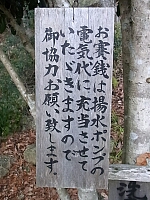 お賽銭は揚水ポンプの
電気代に充当させて
いただきますので
御協力お願い致します。
洗